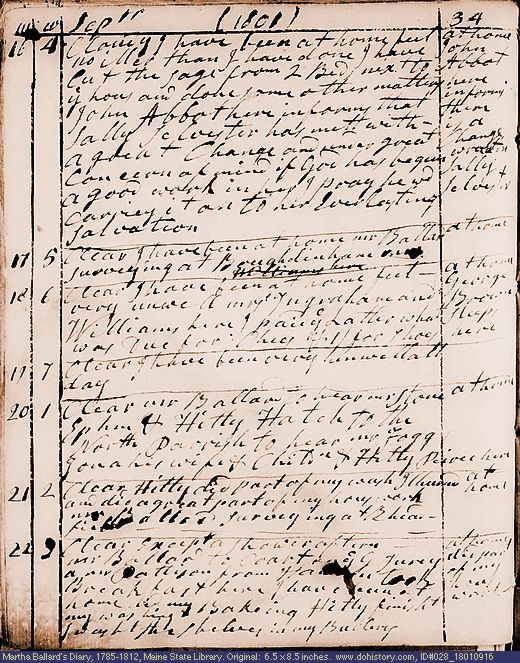 Sepᵗʳ (1801) 34
16 4 Cloudy I have been at home felt at home
no illor than I have done I have John
Cut the sage from 2 Beds next to Abbot
yᵉ hous and done some other matters here
John Abbot here informs that informs
Sally Selvester has mett with there
a great Change and under great is a
Concern of mind if God has begun Change
a good work in her I pray he wd Sally
Carrey it on to her Everlasting Selvester
Salvation
17 5 Clear I have been at home mr Ballard at home
surveying at
18 6 Clear I have been at home felt at home
very unwell mrs Ingraham and George
Williams here I paid latter what Brown
was Due for Shoes here
19 7 Clear I have been very unwell all
day
20 1 Clear mr Ballard to hear mr Stone at home
Ephm & Hitty Hatch to the
North Parrish to hear mr
Jonas his wife & Childⁿ & Hitty here
21 2 Clear Hitty did part of my wash I at
and did a great part of my hous work home
mr Ballard Surveying at
22 3 Clear Except a Showr afternn at home
mr Ballard to did part
from took of my
Breakfast here I have been at hous
home did my work
my washing & Bakeing Hitty
wash the shelves in my
Martha Ballard's Diary, 1785-1812, Maine State Library. Original: 6.5 x 8.5 inches. www.dohistory.com, ID#028_18010916